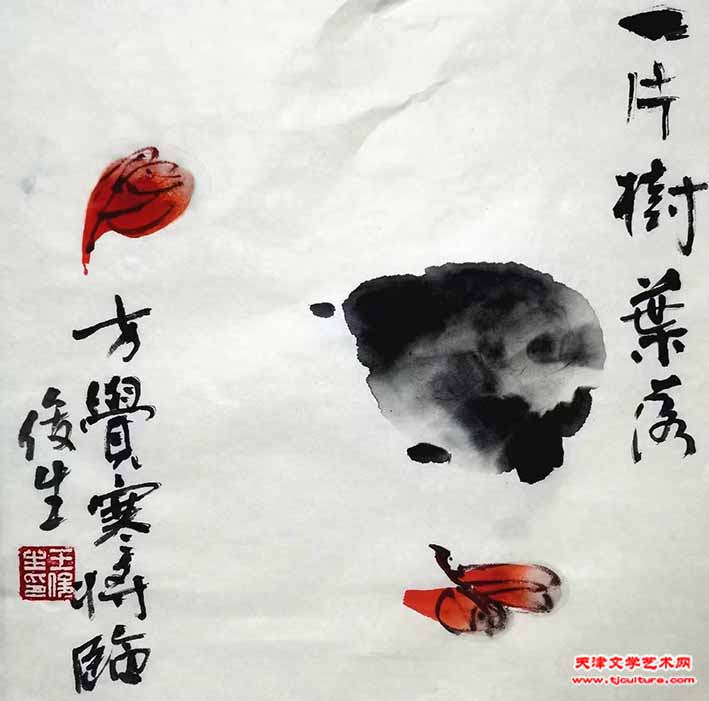 一片樹葉落
方覺寒將臨
俊生
王俊
生印
天津文学艺术网
www.tjculture.com